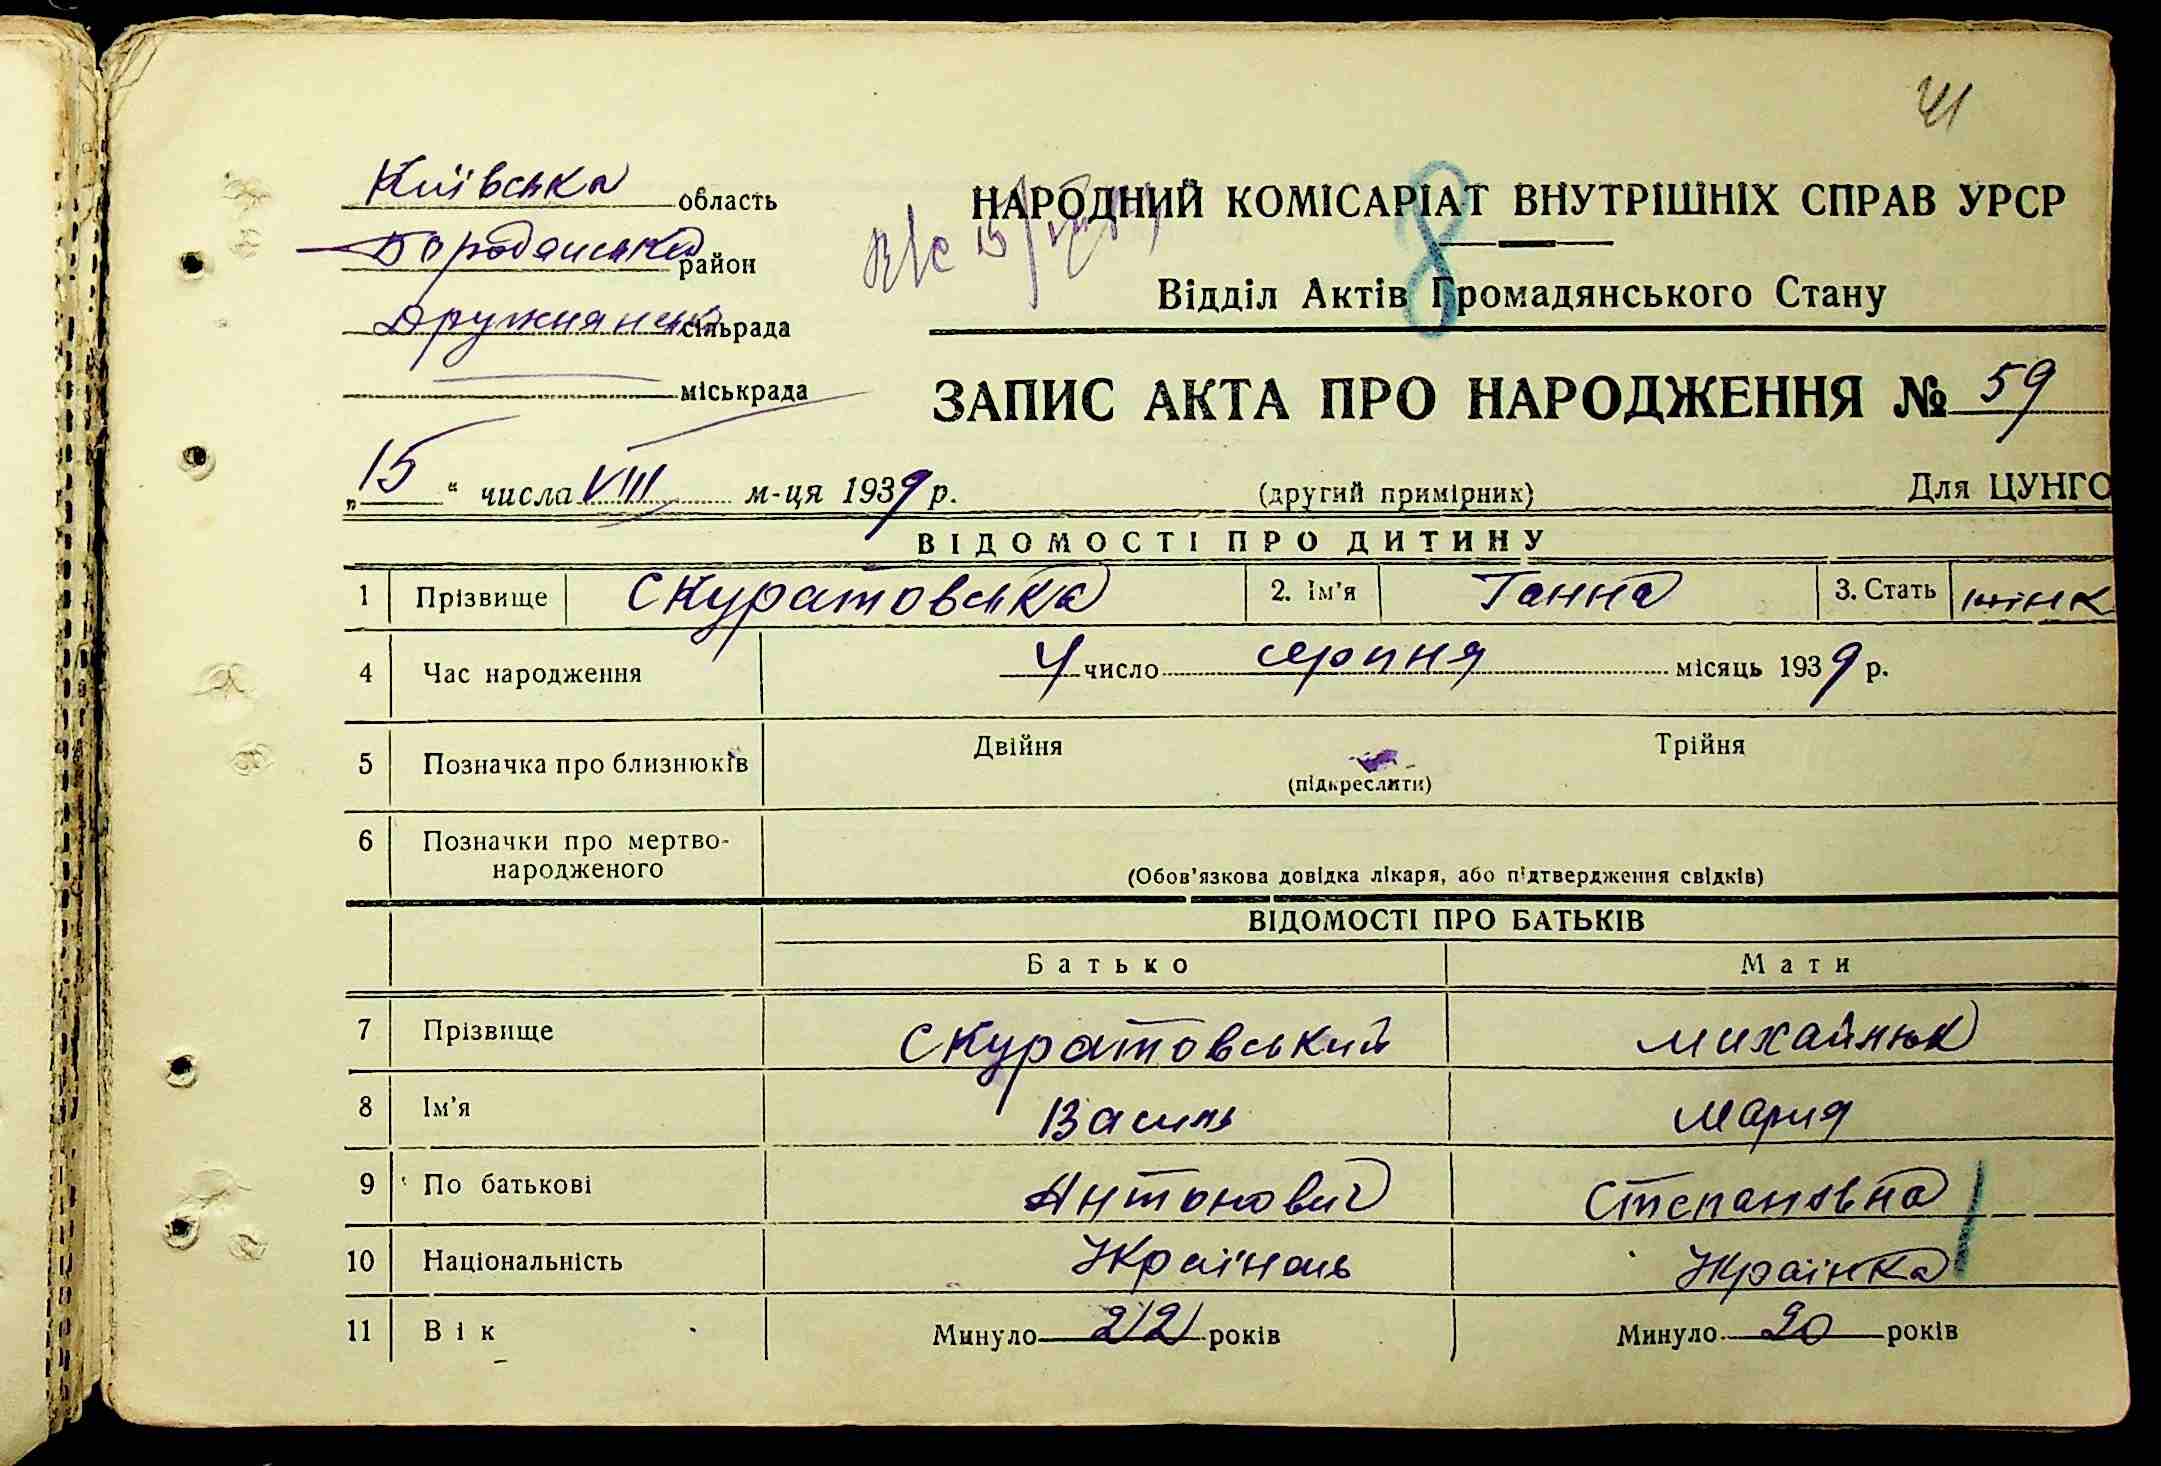 41
Київська область
Бородянський район
Дружнянська сільрада
міськрада
НАРОДНИЙ КОМІСАРІАТ ВНУТРІШНІХ СПРАВ УРСР
8
Відділ Актів Громадянського Стану
ЗАПИС АКТА ПРО НАРОДЖЕННЯ № 59
„15“ числа VIII м-ця 1939 р.
(другий примірник)
Для ЦУНГО
ВІДОМОСТІ ПРО ДИТИНУ
1 Прізвище Скуратовська 2. Ім'я Ганна 3. Стать жінк
4 Час народження 4 число серпня місяць 1939 р.
5 Позначка про близнюків Двійня Трійня
(підкреслити)
6 Позначки про мертво-
народженого
(Обов'язкова довідка лікаря, або підтвердження свідків)
ВІДОМОСТІ ПРО БАТЬКІВ
Батько Мати
7 Прізвище Скуратовський Михайлюк
8 Ім'я Василь Мария
9 По батькові Антонович Степановна
10 Національність Українець Українка
11 Вік Минуло 22 років Минуло 20 років